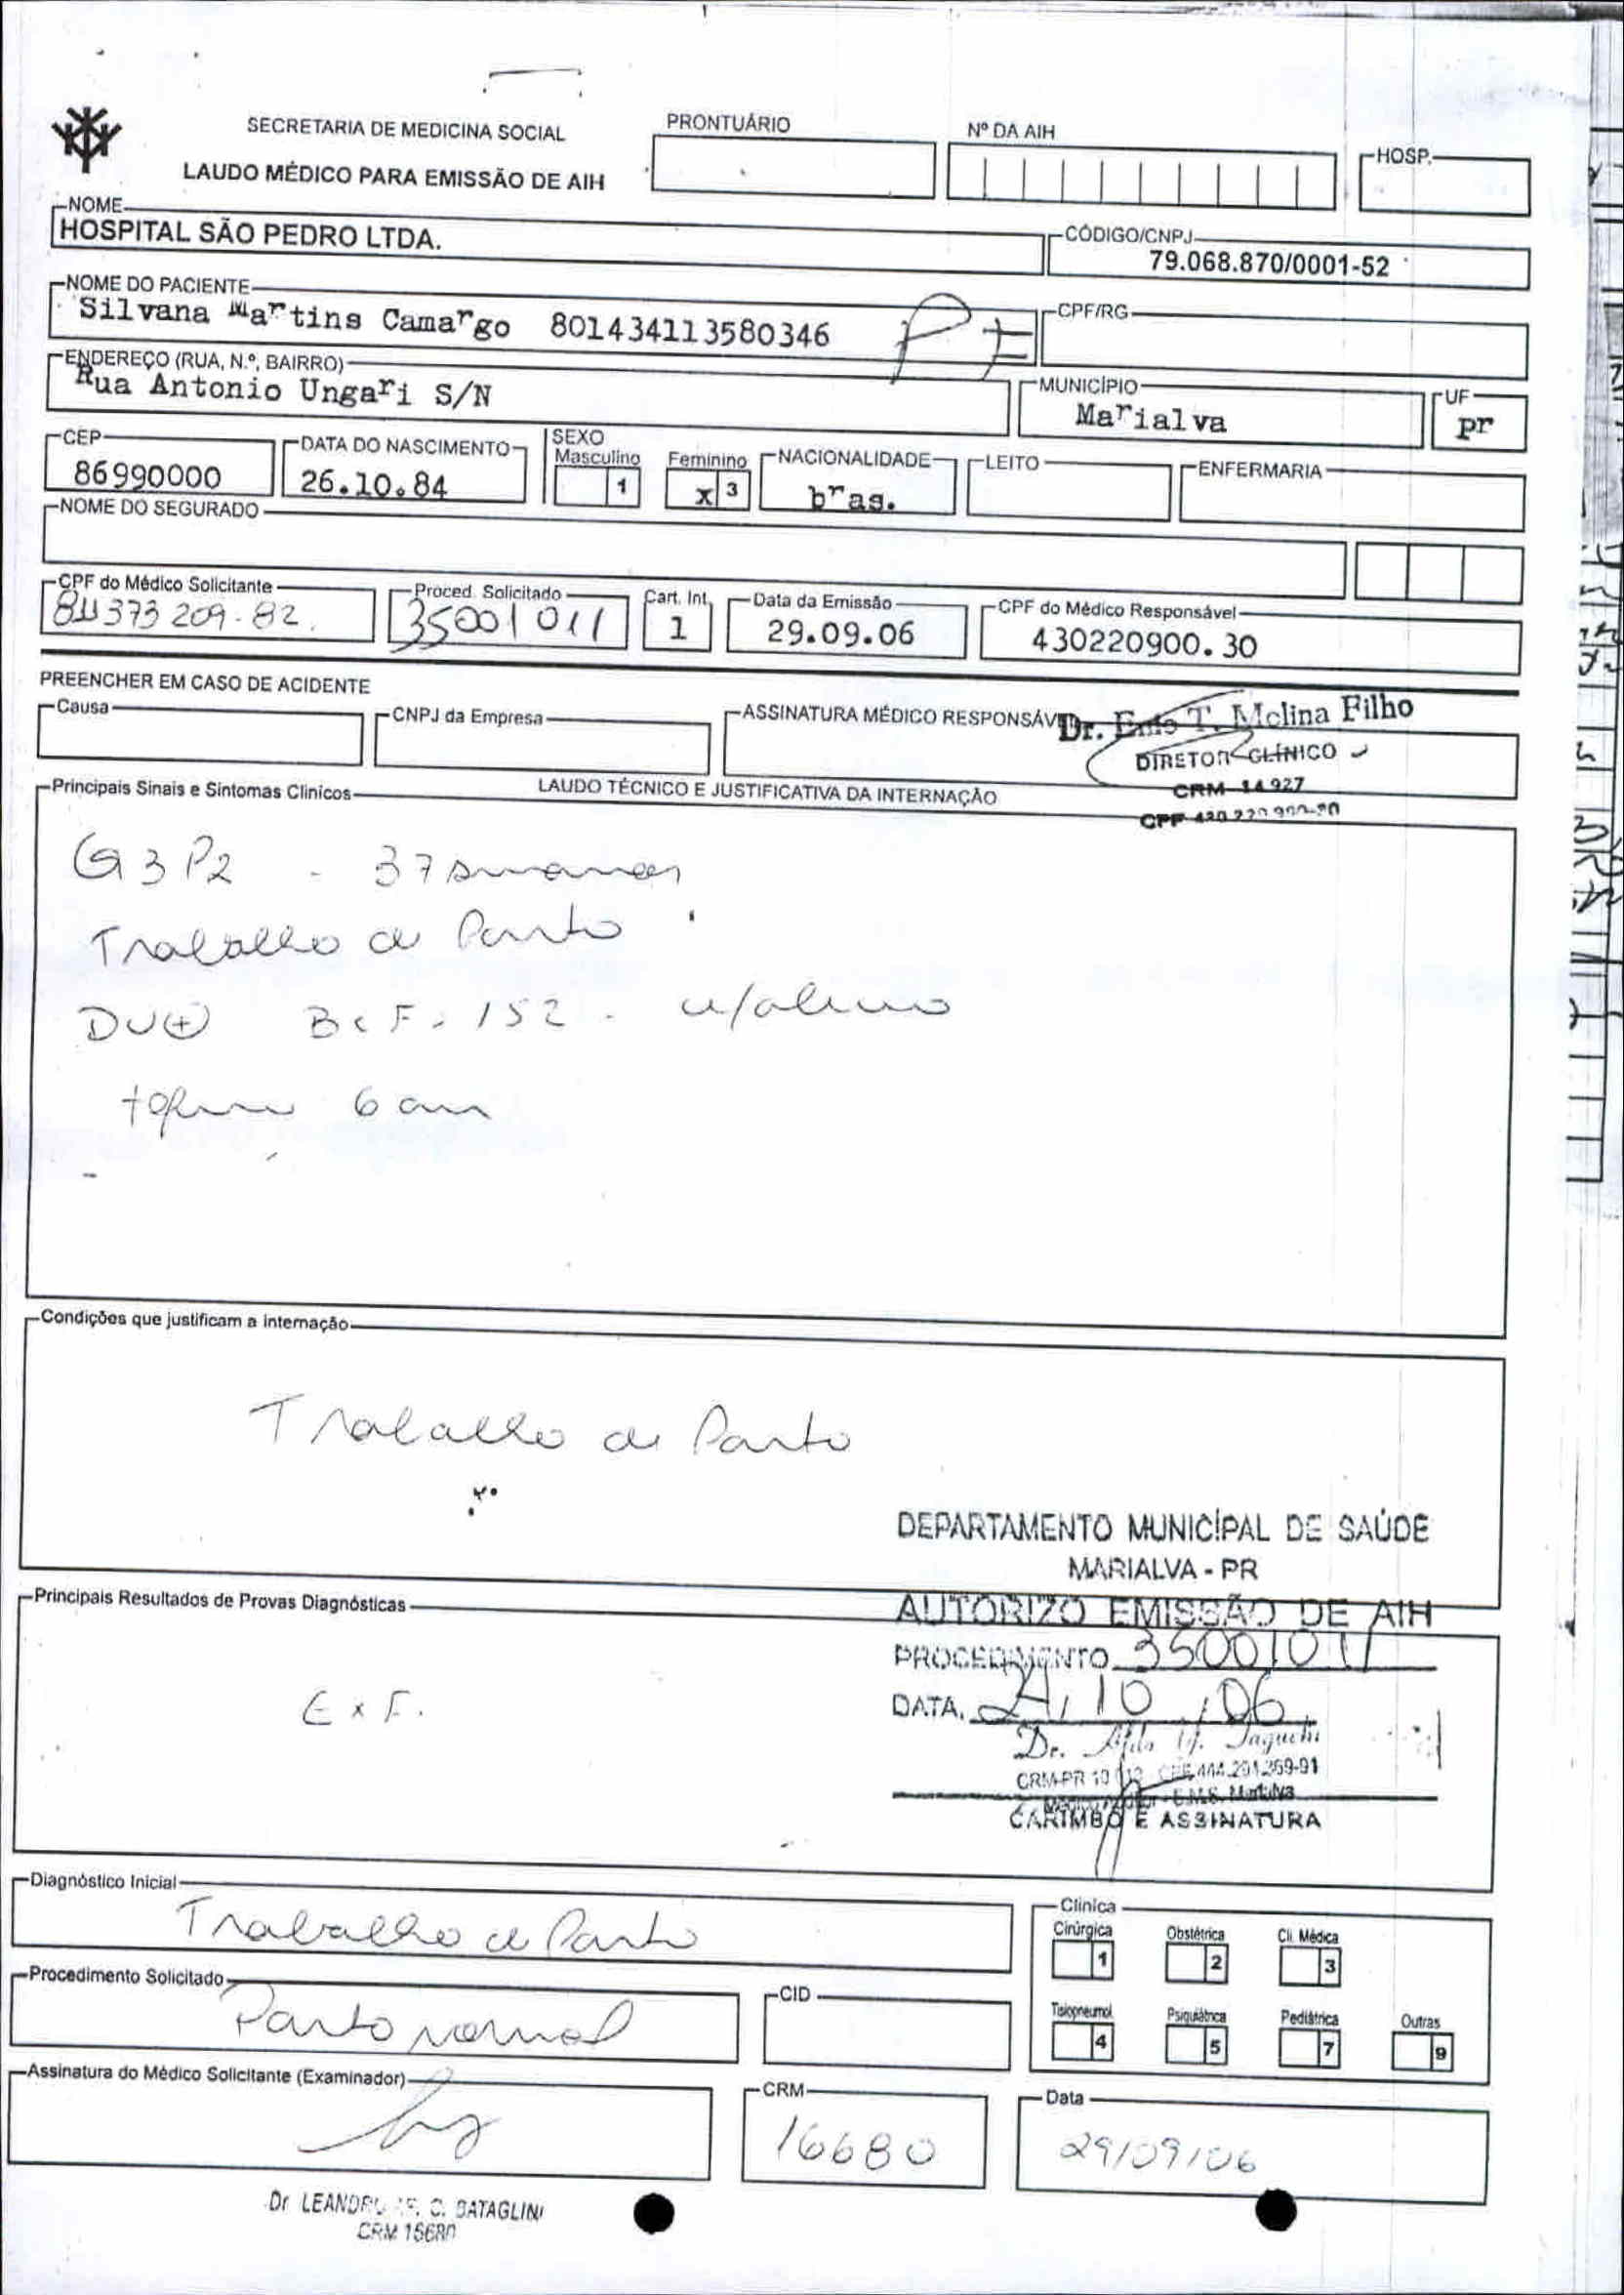 SECRETARIA DE MEDICINA SOCIAL
LAUDO MÉDICO PARA EMISSÃO DE AIH
PRONTUÁRIO
Nº DA AIH
HOSP.
NOME
HOSPITAL SÃO PEDRO LTDA.
CÓDIGO/CNPJ
79.068.870/0001-52
NOME DO PACIENTE
Silvana Martins Camargo 801434113580346
CPF/RG
ENDEREÇO (RUA, N.º, BAIRRO)
Rua Antonio Ungari S/N
MUNICÍPIO
Marialva
UF
pr
CEP
86990000
DATA DO NASCIMENTO
26.10.84
SEXO
Masculino 1
Feminino x 3
NACIONALIDADE
bras.
LEITO
ENFERMARIA
NOME DO SEGURADO
CPF do Médico Solicitante
373 209-82.
Proced. Solicitado
35001011
Cart. Int.
1
Data da Emissão
29.09.06
CPF do Médico Responsável
430220900.30
PREENCHER EM CASO DE ACIDENTE
Causa
CNPJ da Empresa
ASSINATURA MÉDICO RESPONSÁV
Dr. T. Molina Filho
DIRETOR CLÍNICO
CRM 14927
CPF
Principais Sinais e Sintomas Clínicos
LAUDO TÉCNICO E JUSTIFICATIVA DA INTERNAÇÃO
G3P2 - 37 semanas
Trabalho de Parto
DU+ BCF. 152.
6 cm
Condições que justificam a internação
Trabalho de Parto
DEPARTAMENTO MUNICÍPAL DE SAÚDE
MARIALVA - PR
AUTORIZO EMISSÃO DE AIH
PROCEDIMENTO 35001011
DATA, 24/10/06
Dr. Taguchi
CRM-PR
CARIMBO E ASSINATURA
Principais Resultados de Provas Diagnósticas
ExF.
Diagnóstico Inicial
Trabalho de Parto
Clínica
Cirúrgica 1
Obstétrica 2
Cli. Médica 3
Tisiopneumol. 4
Psiquiátrica 5
Pediátrica 7
Outras 9
Procedimento Solicitado
Parto normal
CID
Assinatura do Médico Solicitante (Examinador)
CRM
16680
Data
29/09/06
Dr LEANDRO C. BATAGLINI
CRM 16680